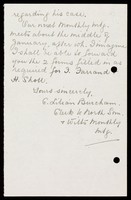 regarding his case,
Our next Monthly Mtg.
meets about the middle of
January, after wh. I imagine
I shall be able to forward
you the 2 forms filled in as
required for I. Farrand
H. Sholl.
Yours sincerely,
Edith Burcham.
Clerk to North Som.
& Wilts Monthly
Mtg.